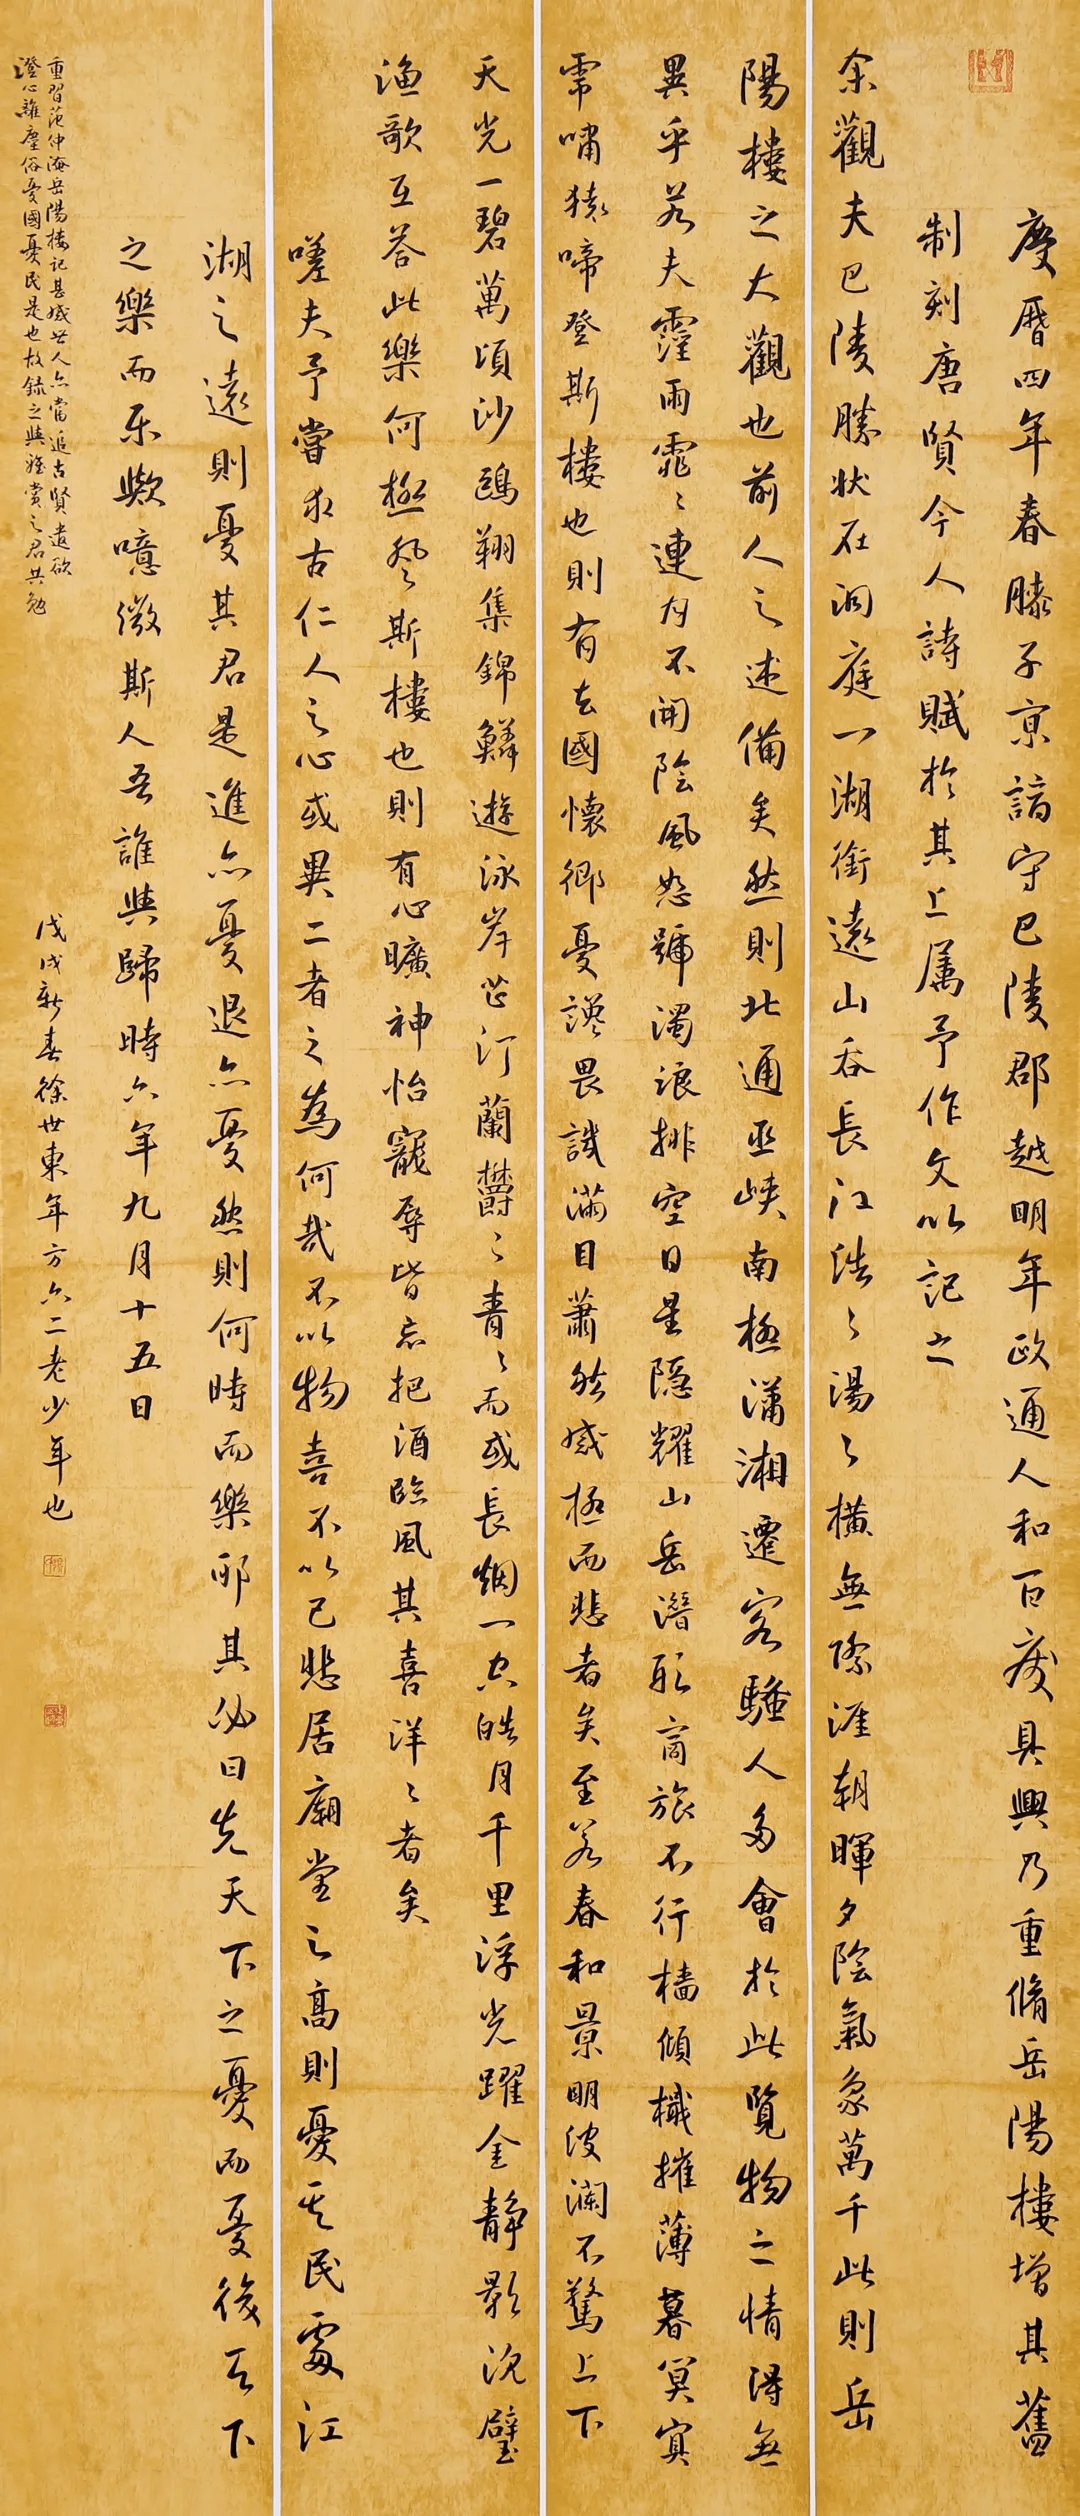 慶曆四年春滕子京謫守巴陵郡越明年政通人和百廢具興乃重脩岳陽樓增其舊
制刻唐賢今人詩賦於其上属予作文以記之
余觀夫巴陵勝狀在洞庭一湖銜遠山吞長江浩々湯々橫無際涯朝暉夕陰氣象萬千此則岳
陽樓之大觀也前人之述備矣然則北通巫峽南極瀟湘遷客騷人多會於此覽物之情得無
異乎若夫霪雨霏々連月不開陰風怒號濁浪排空日星隱耀山岳潛形商旅不行檣傾檝摧薄暮冥冥
虎嘯猿啼登斯樓也則有去國懷鄉憂讒畏譏滿目蕭然感極而悲者矣至若春和景明波瀾不驚上下
天光一碧萬頃沙鷗翔集錦鱗遊泳岸芷汀蘭欝々青々而或長烟一空皓月千里浮光躍金静影沈璧
漁歌互荅此樂何極登斯樓也則有心曠神怡寵辱皆忘把酒臨風其喜洋々者矣
嗟夫予嘗求古仁人之心或異二者之為何哉不以物喜不以己悲居廟堂之高則憂其民處江
湖之遠則憂其君是進亦憂退亦憂然則何時而樂耶其必曰先天下之憂而憂後天下
之樂而乐歟噫微斯人吾誰與歸時六年九月十五日
重習范仲淹岳陽樓記甚感世人亦當追古賢遺欲
澄心離塵俗憂國憂民是也故錄之與雅賞之君共勉
戊戌新春徐世東年方六二老少年也